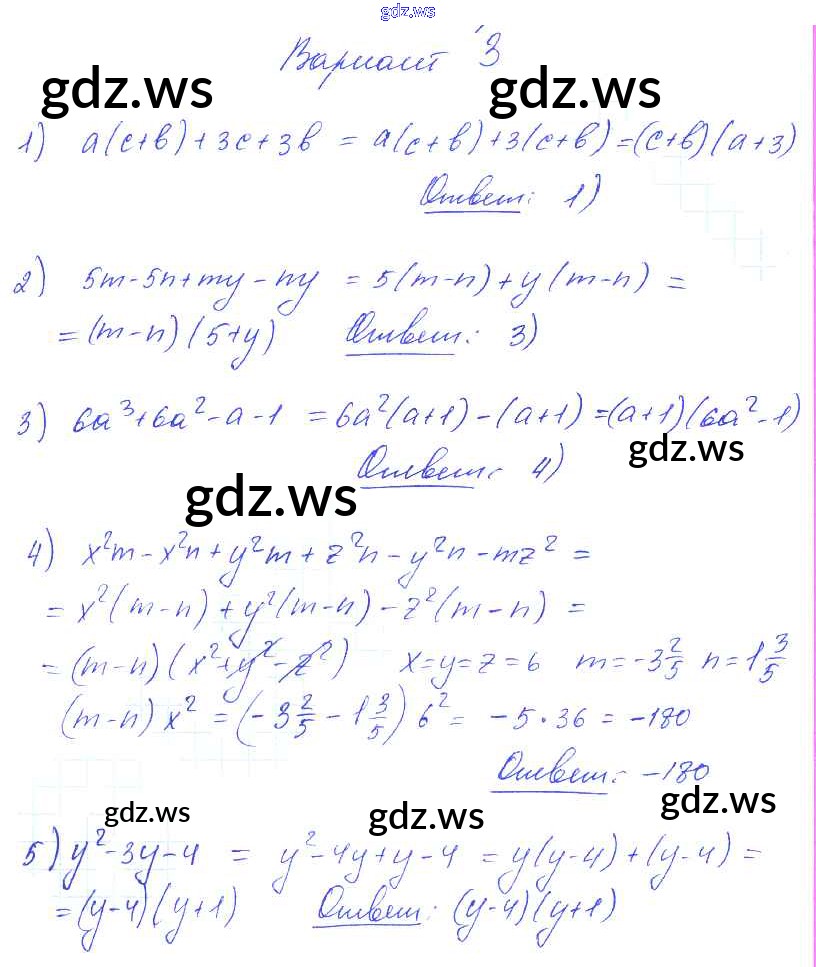 gdz.ws
Вариант 3
gdz.ws gdz.ws
1) a(c+b)+3c+3b = a(c+b)+3(c+b)=(c+b)(a+3)
Ответ: 1)
2) 5m-5n+my-ny = 5(m-n)+y(m-n) =
=(m-n)(5+y) Ответ: 3)
3) 6a³+6a²-a-1 = 6a²(a+1)-(a+1)=(a+1)(6a²-1)
gdz.ws
Ответ: 4)
gdz.ws
4) x²m-x²n+y²m+z²n-y²n-mz² =
= x²(m-n)+y²(m-n)-z²(m-n) =
=(m-n)(x²+y²-z²) x=y=z=6 m=-3 2/5 n=1 3/5
(m-n)x² = (-3 2/5 - 1 3/5) 6² = -5·36 = -180
Ответ: -180
gdz.ws gdz.ws gdz.ws
5) y²-3y-4 = y²-4y+y-4 = y(y-4)+(y-4) =
=(y-4)(y+1) Ответ: (y-4)(y+1)